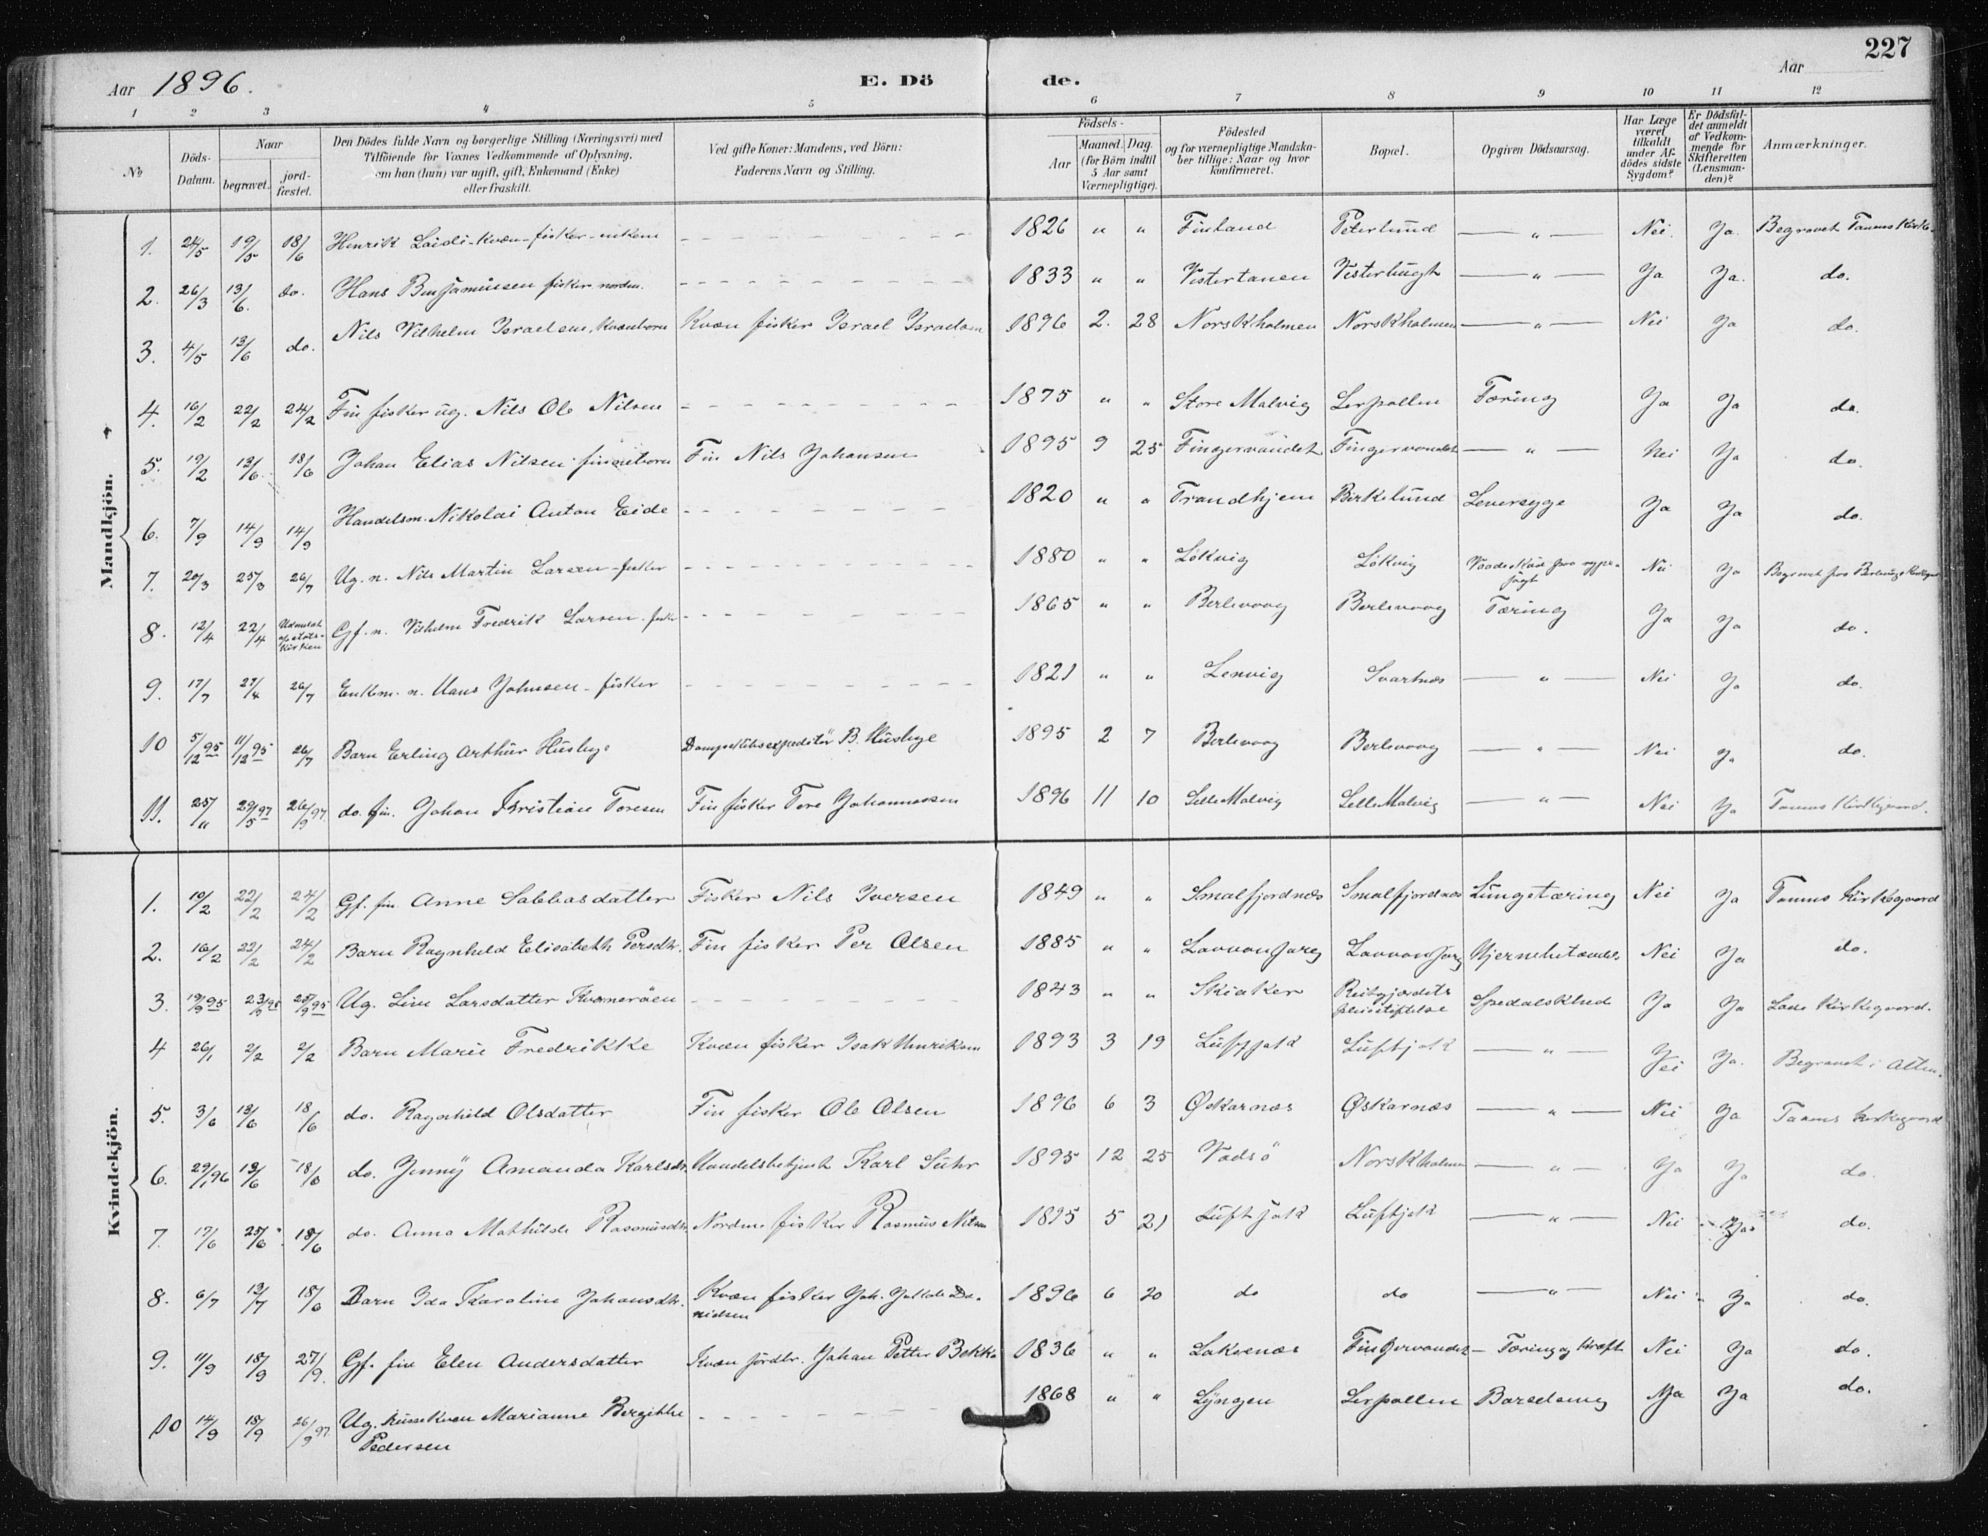 227
Aar 1896.
E. Dö
de.
Aar
1 2 3 4 5 6 7 8 9 10 11 12
No
Döds-Datum.
Naar
begravet.
jord-fæstet.
Den Dödes fulde Navn og borgerlige Stilling (Næringsvei) med
Tilföiende for Voxnes Vedkommende af Oplysning,
om han (hun) var ugift, gift, Enkemand (Enke)
eller fraskilt.
Ved gifte Koner: Mandens, ved Börn:
Faderens Navn og Stilling.
Födsels-
Aar
Maaned. Dag.
(for Börn indtil
5 Aar samt
Værnepligtige).
Födested
og for værnepligtige Mandska-
ber tillige: Naar og hvor
konfirmeret.
Bopæl.
Opgiven Dödsaarsag.
Har Læge
været
tilkaldt
under Af-
dödes sidste
Sygdom?
Er Dödsfal-
det anmeldt
af Vedkom-
mende for
Skifteretten
(Lensman-
den)?
Anmærkninger.
Mandkjön.
1. 24/5 19/5 18/6 Henrik Laidi - kvæn - fisker - enkem 1826 " " Finland Peterlund — " — Nei. Ja. Begravet Tanens Kirke.
2. 26/3 13/6. do. Hans Benjaminsen fisker nordm. 1833 " " Vestertanen Vesterbugt — " — Ja Ja. do.
3. 4/5 13/6 do. Nils Vilhelm Israelsen, kvænbarn Kvæn fisker Israel Israelsen 1896 2. 28 Norskholmen Norskholmen — " — Nei Ja do.
4. 16/2 22/2 24/2 Fin fisker ug. Nils Ole Nilsen 1875 " " Store Malvig Lerpollen Tæring Ja Ja do.
5. 19/2 13/6. 18/6 Johan Elias Nilsen finnebarn Fin Nils Johansen 1895 9 25 Fingervandet Fingervandet — " — Nei Ja do.
6. 7/9 14/9 14/9 Handelsm. Nikolai Anton Eide 1820 " " Trondhjem Birkelund Leversyge Ja Ja do.
7. 20/3 25/3 26/7 Ug. n. Nils Martin Larsen - fisker 1880 " " Lökvig Lökvig Vaadeskud paa rype-jagt Nei Ja Begravet paa Berlevaags Kirkegaard
8. 12/4 22/4 Udmeldt af stats-kirken Gf. n. Vilhelm Fredrik Larsen. fisker 1865 " " Berlevaag Berlevaag Tæring Ja Ja do.
9. 17/7 27/4 26/7 Enkem. n. Hans Johnsen - fisker 1821 " " Lenvig Svartnæs — " — Nei Ja do.
10 5/12 95 11/12 95 26/7 Barn Erling Arthur Husbye Dampskibsexpeditör B. Husbye 1895 2 7 Berlevaag Berlevaag — " — Nei Ja do.
11. 25/11 29/5 97 26/9 97. do. fin. Johan Kristian Toresen Fin fisker Tore Johannessen 1896 11 10 Lille Malvig Lille Malvig — " — Nei Ja Tanens Kirkegaard.
Kvindekjön.
1. 10/2 22/2 24/2 Gf. fin Anne Sabbasdatter Fisker Nils Iversen 1849 " " Smalfjordnæs Smalfjordnæs Lungetæring Nei Ja Tanens Kirkegaard
2. 16/2 22/2 24/2 Barn Ragnhild Elisabeth Persdtr. Fin fisker Per Olsen 1885 " " Lavvonjarg Lavvonjarg Hjernebetændels. Nei Ja do.
3. Ug. Line Larsdatter Kvamerøen 1843 " " Skiaker Reitgjærdets pleiestiftelse Spedalskhed Ja Ja Lade Kirkegaard.
4 26/1 2/2 2/2 Barn Marie Fredrikke Kvæn fisker Isak Henriksen 1893 3 19 Luftjok Luftjok — " — Nei Ja. Begravet i Alten.
5. 3/6 13/6 18/6 do. Ragnhild Olsdatter Fin fisker Ole Olsen 1896 6 3 Øskarnæs Øskarnæs — " — Nei Ja Tanens Kirkegaard
6. 29/1 96 13/6 18/6 do. Jenny Amanda Karlsdtr. Handelsbetjent Karl Suhr 1895 12 25 Vadsö Norskholmen — " — Ja Ja do.
7. 17/6 25/6 18/6 do. Anna Mathilde Rasmusdtr. Nordm. fisker Rasmus Nilsen 1895 5 21 Luftjok Luftjok — " — Nei Ja do.
8. 6/7 12/7 18/6 Barn Ida Karoline Johansdtr. Kvæn fisker Joh. Da-nielsen 1896 6 20 do do — " — Nei Ja do.
9. 11/9 18/9 27/9. Gf. fin Elen Andersdatter Kvæn jordbr. Johan Petter Bekka 1836 " " Laksenæs Fingervandet — Tæring og kræft Nei Ja do.
10 14/9 18/9 26/9 97. Ug. Marianne Bergitte Pedersen 1868 " " Lyngen Lerpollen Barselseng Ja Ja do.